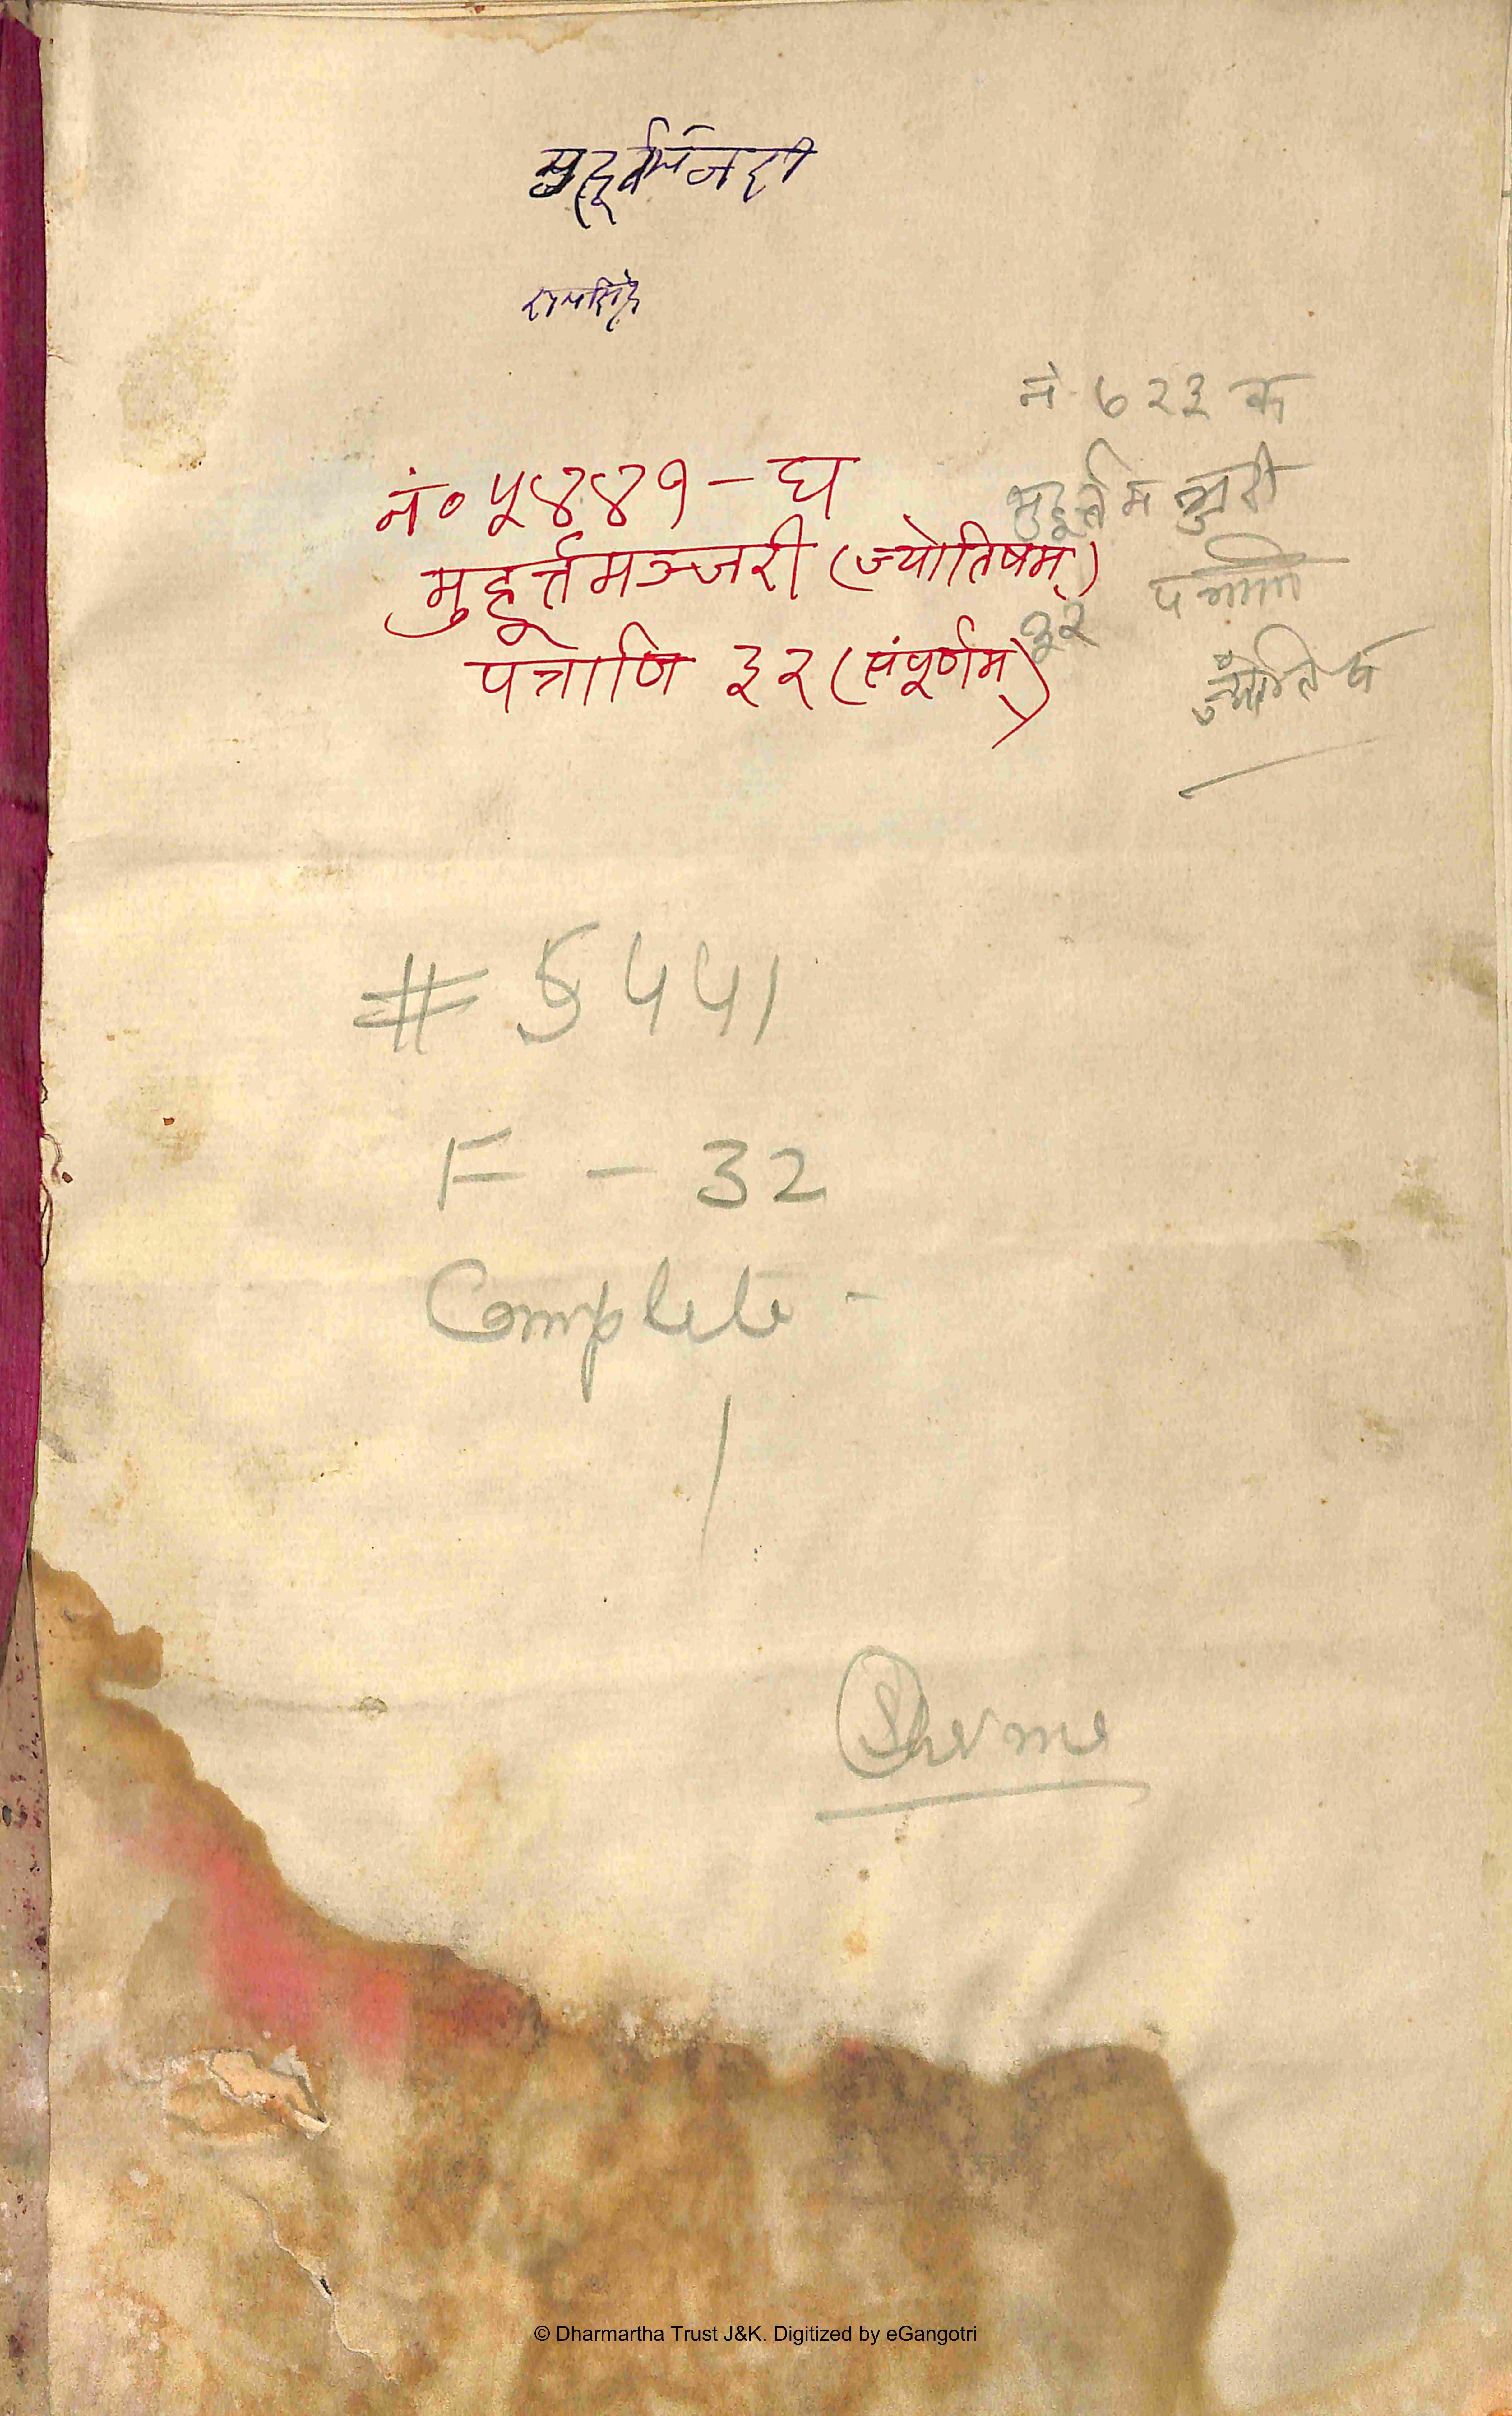 मुहूर्तमंजरी
रामसिंह
नं० ५४४१-घ
मुहूर्त्तमञ्जरी (ज्योतिषम्)
पत्राणि ३२ (संपूर्णम्)
नं ७२३ क
मुहूर्त्तमञ्जरी
पत्राणि
३२
ज्योतिष
# 5441
F - 32
Complete -
Sharma
© Dharmartha Trust J&K. Digitized by eGangotri